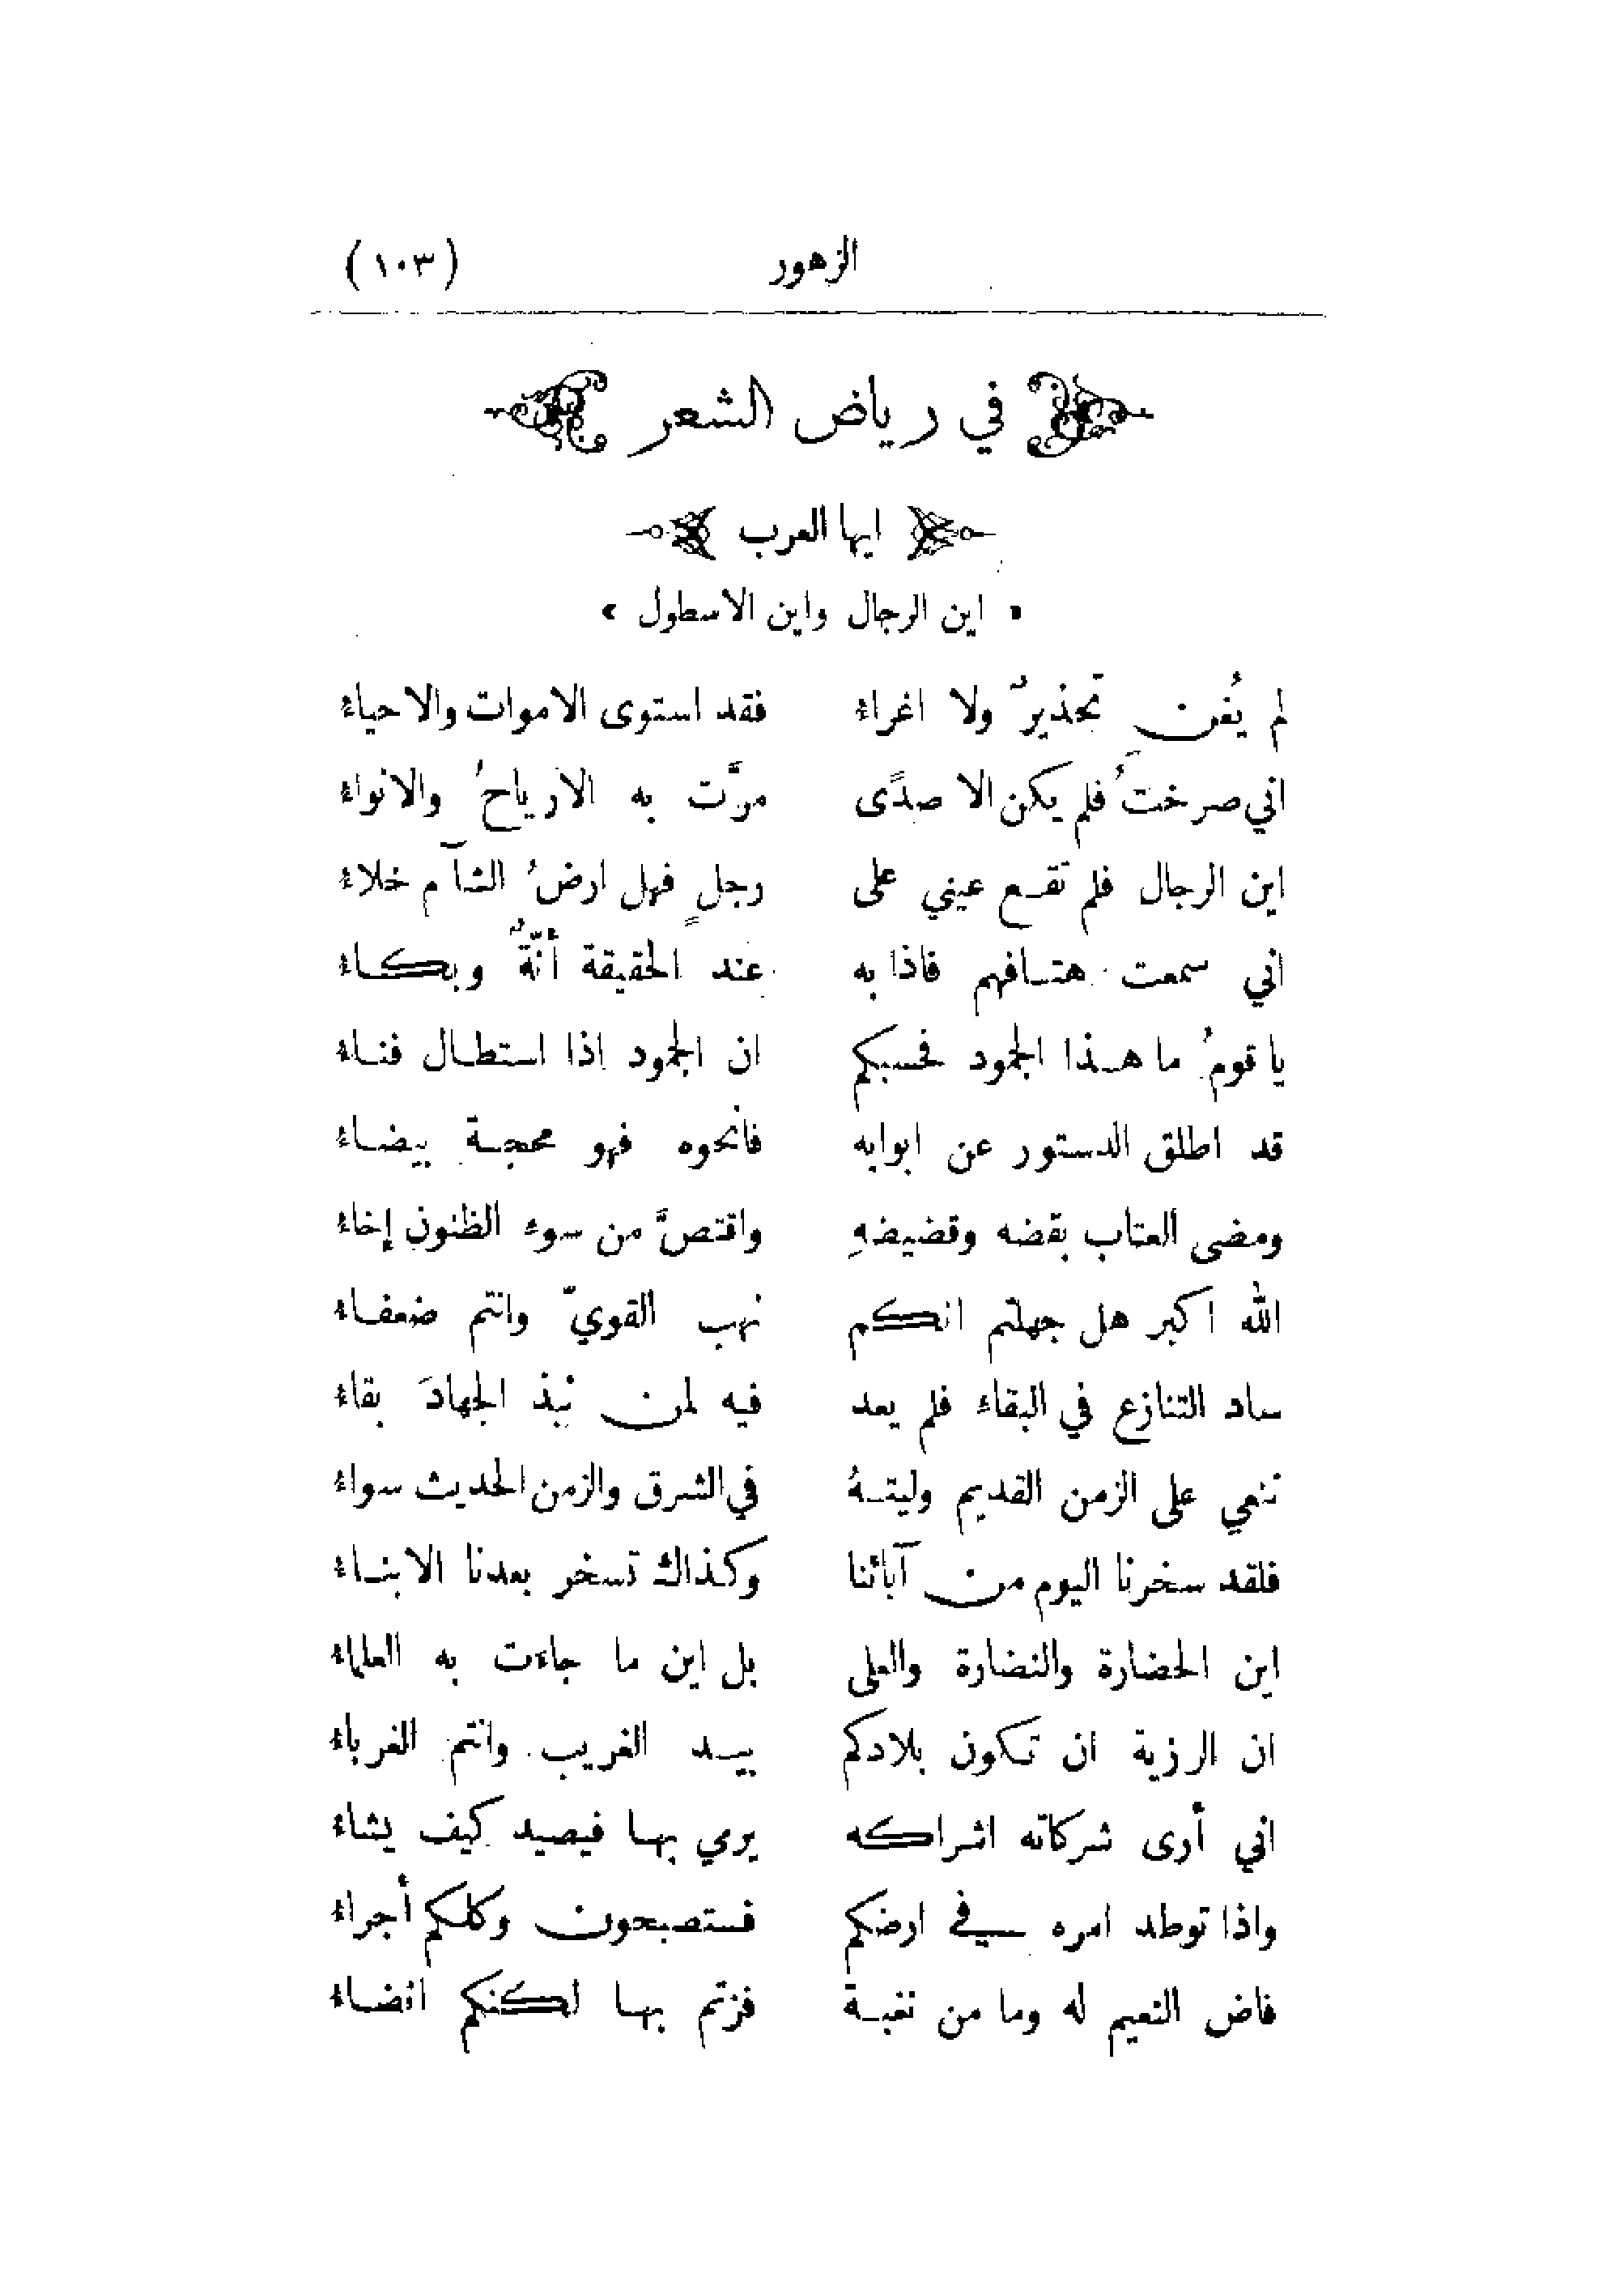 الزهور (١٠٣)
في رياض الشعر
ايها العرب
« اين الرجال واين الاسطول »
لم يُغن تحذيرٌ ولا اغراء فقد استوى الاموات والاحياء
اني صرختُ فلم يكن الا صدًى مرَّت به الارياحُ والانواء
اين الرجال فلم تقع عيني على رجلٍ فهل ارضُ الشآم خلاء
اني سمعت هتافهم فاذا به عند الحقيقة أنّةٌ وبكاء
يا قومُ ما هذا الجمود فحسبكم ان الجمود اذا استطال فناء
قد اطلق الدستور عن ابوابه فانحوه فهو محجة بيضاء
ومضى العتاب بقضه وقضيضهِ واقتصَّ من سوء الظنون إخاء
الله اكبر هل جهلتم انكم نهب القويّ وانتم ضعفاء
ساد التنازع في البقاء فلم يعد فيه لمن نبذ الجهادَ بقاء
ننعي على الزمن القديم وليتهُ في الشرق والزمن الحديث سواء
فلقد سخرنا اليوم من آبائنا وكذاك تسخر بعدنا الابناء
اين الحضارة والنضارة والعلى بل اين ما جاءت به العلماء
ان الرزية ان تكون بلادكم بيد الغريب وانتم الغرباء
اني أرى شركاته اشراكه يرمي بها فيصيد كيف يشاء
واذا توطد امره في ارضكم فستصبحون وكلكم أجراء
فاض النعيم له وما من نغبة فزتم بها لكنكم انضاء